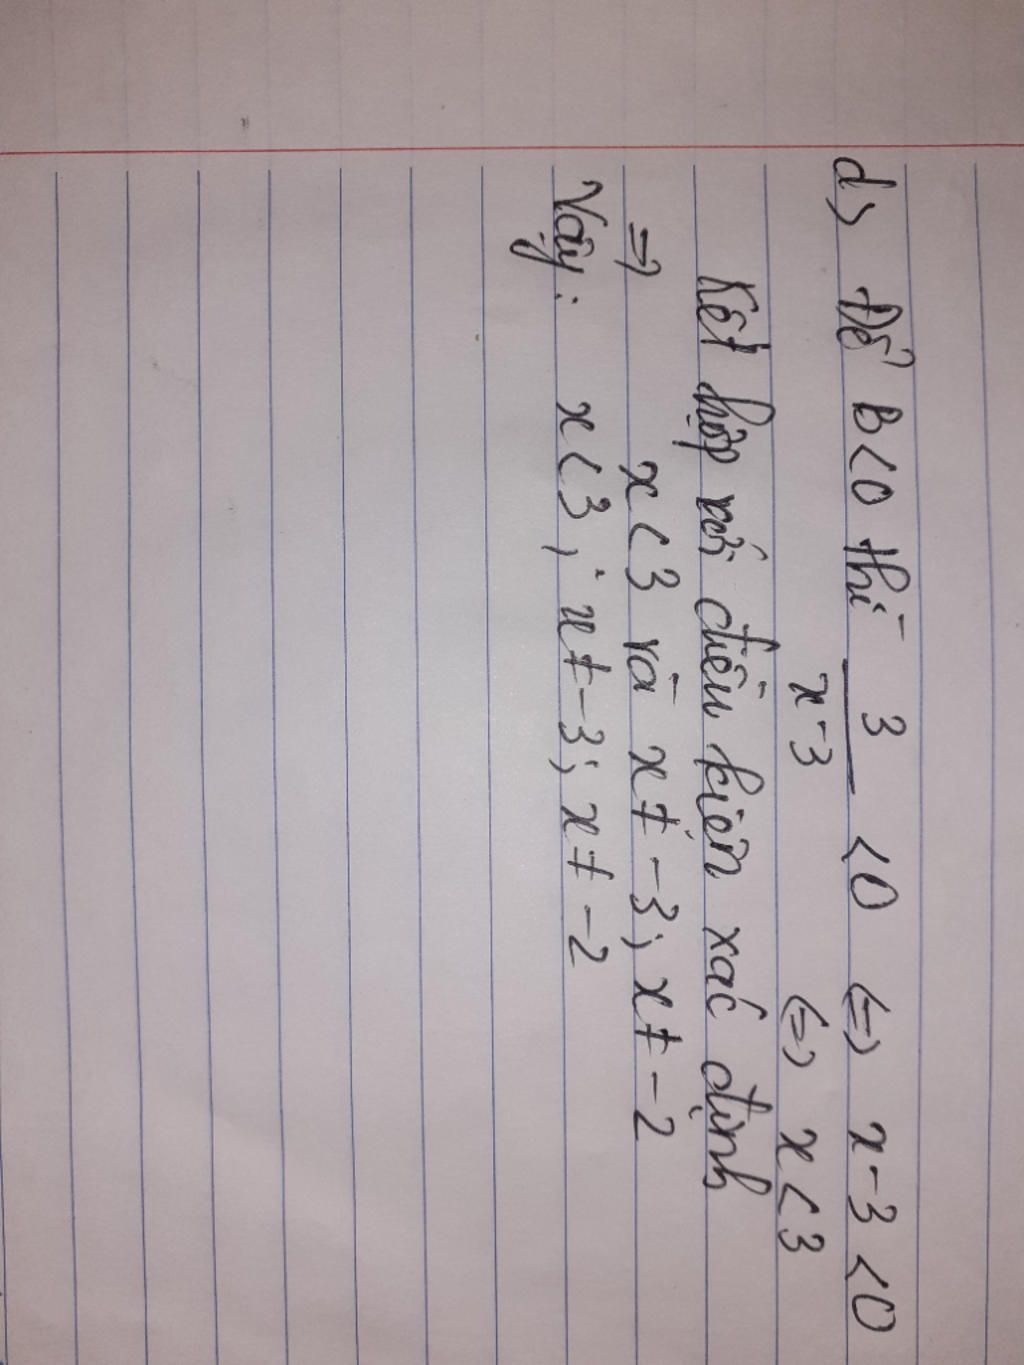 d) Để B<0 thì 3/(x-3) <0 <=> x-3 <0
<=> x<3
Kết hợp với điều kiện xác định
=> x<3 và x≠-3; x≠-2
Vậy: x<3; x≠-3; x≠-2